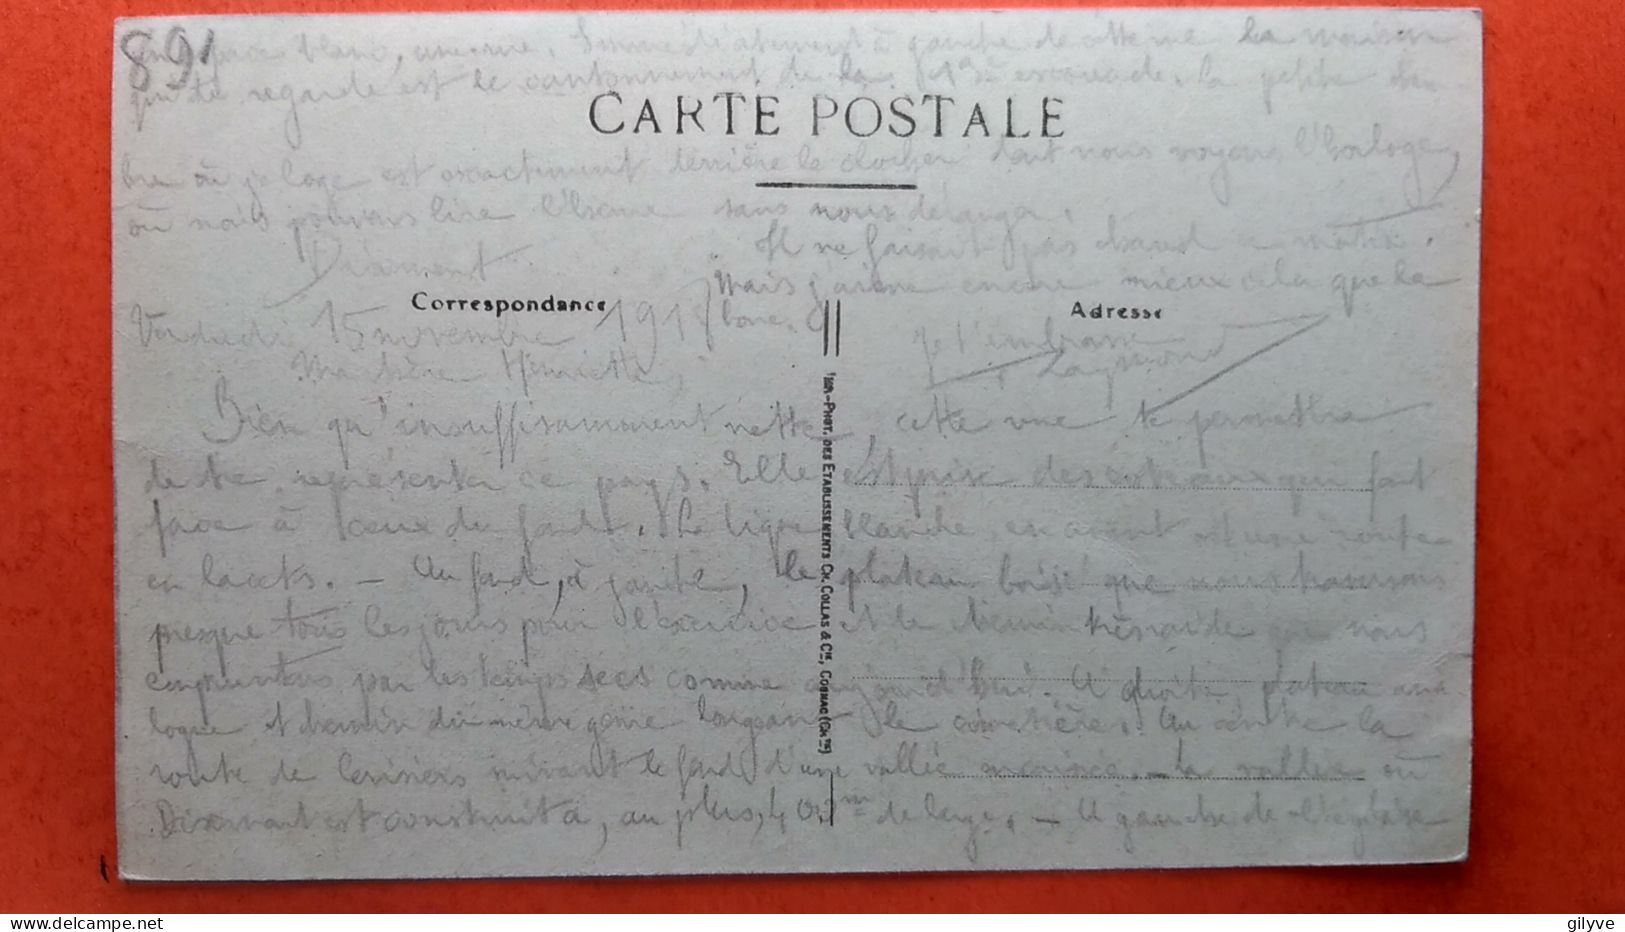 891
espace blanc, une rue. Immédiatement à gauche de cette rue la maison
qui te regarde est le cantonnement de la escouade. La petite cham-
CARTE POSTALE
bre où je loge est exactement derrière le clocher dont nous voyons l'horloge,
où nous pouvons lire l'heure sans nous déranger.
Il ne faisait pas chaud ce matin.
Mais j'aime encore mieux cela que la
boue.
Je t'embrasse
Raymond
Correspondance
Adresse
Vendredi 15 novembre 191
Ma chère Henriette,
Bien qu'insuffisamment nette, cette vue te permettra
de te représenter ce pays. Elle est prise des coteaux qui font
face à ceux du fond. La ligne blanche, en avant est une route
en lacets. — Au fond, à gauche, le plateau boisé que nous traversons
presque tous les jours pour l'exercice et le chemin très raide que nous
empruntons par les temps secs comme aujourd'hui. A droite, plateau ana-
logue et chemin du même genre longeant le cimetière. Au centre la
route de suivant le fond d'une vallée — La vallée où
est construit a, au plus, 400m de large. — A gauche de l'église
IMP.-PHOT. DES ETABLISSEMENTS CH. COLLAS & Cie, COGNAC (Chte)
gilyve